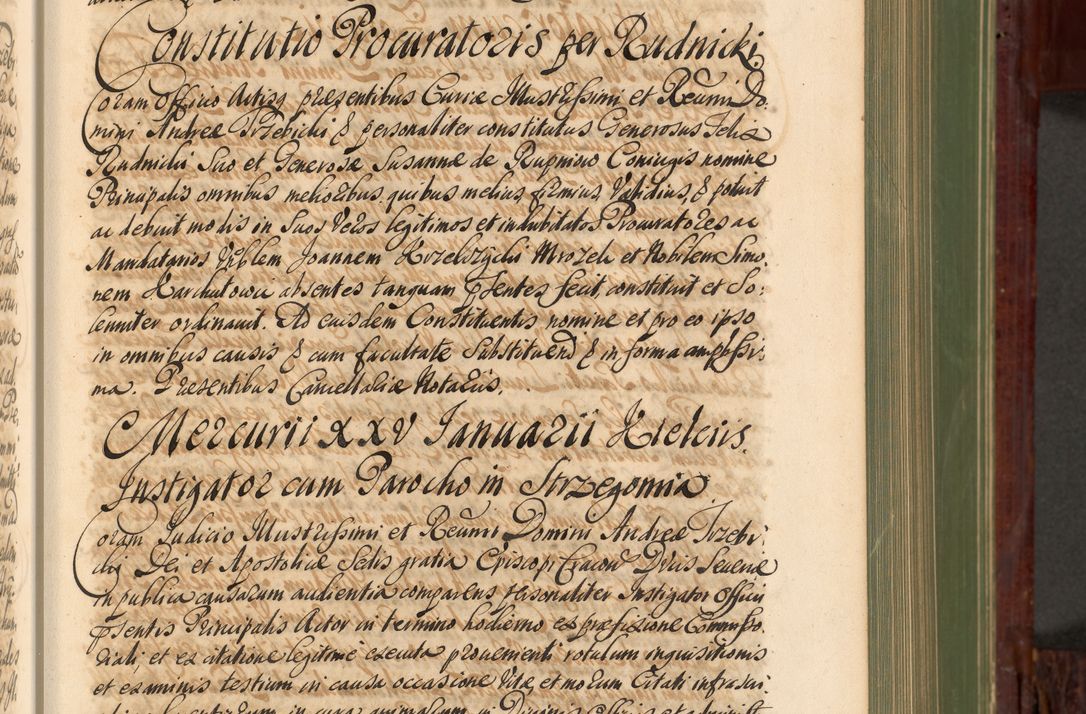 Constitutio Procuratoris per Rudnicki
Coram Officio Actisq presentibus Curiæ Illustrissimi et Reumi Do:
mini Andreæ Trzebicki & personaliter constitutus Generosus Felix
Rudnicki Suo et Generosæ Susannæ de Rupniow Coniugis nomine
Principalis omnibus melioribus quibus melius, firmius, Validius, & potuit
ac debuit modis in Suos Veros legitimos et indubitatos Procuratores ac
Mandatarios Vrblem Joannem Mrozek et Nobilem Simo:
nem absentes tanquam psentes fecit, constituit et So:
lenniter ordinauit. Ad eiusdem Constituentis nomine et pro eo ipso
in omnibus causis & cum facultate Substituend & in forma amplissi:
ma. Presentibus Cancellariæ Notariis.
Mercurii XXV Ianuarii Kielciis.
Instigator cum Parocho in Strzegomia
Coram Iudicio Illustrissimi et Reumi Domini Andreæ Trzebi:
cki Dei et Apostolicæ Sedis gratia Episcopi Cracou Ducis Seueriæ
in publica causarum audientia comparens personaliter Instigator Officii
psentis Principalis Actor in termino hodierno ex præfixione Commisso:
riali et ex citatione legitime executa prouenienti rotulum inquisitionis
et examinis testium in causa occasione Vitæ et morum Citati infrascri: